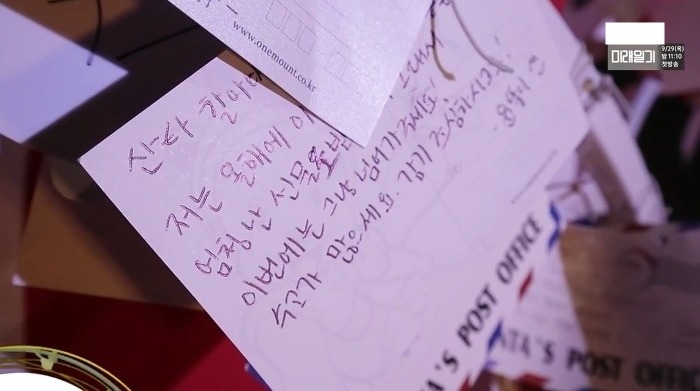 www.onemount.co.kr
산타 할아
저는 올해에 이
엄청난 선물을 받
이번에는 그냥 넘어가주세요!
수고가 많으세요. 감기 조심하시고
SANTA'S POST OFFICE
NTA'S POST OFFICE
미래일기
9/29(목)
밤 11:10
첫방송